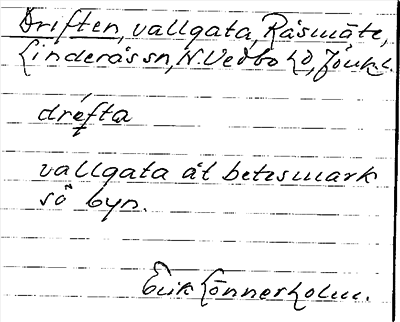 Driften, vallgata, Råsmåte,
Linderås sn, N. Vedbo hd, Jönk. l.
dréfta
vallgata åt betesmark
sö byn.
Erik Lönnerholm.